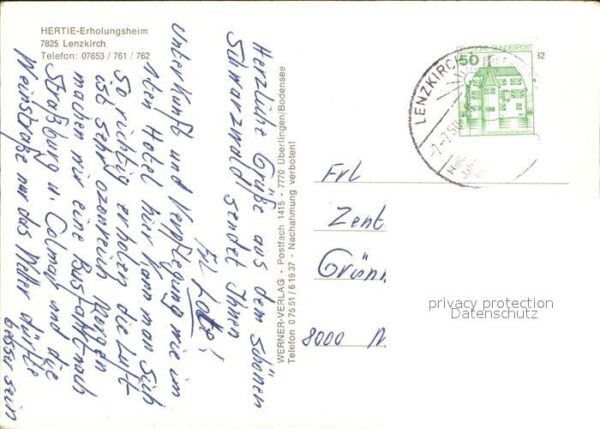 HERTIE-Erholungsheim
7825 Lenzkirch
Telefon: 07653 / 761 / 762
Herzliche Grüße aus dem schönen
Schwarzwald sendet Ihnen
Frl.
Unterkunft und Verpflegung wie im
1ten Hotel hier kann man sich
so richtig erholen die Luft
ist sehr ozonreich Morgen
machen wir eine Busfahrt nach
Straßburg u. Colmar und die
Weinstraße nur das Wetter dürfte
besser sein
WERNER-VERLAG - Postfach 1415 - 7770 Überlingen/Bodensee
Telefon 07551/61937 - Nachahmung verboten!
LENZKIRCH
50
DEUTSCHE BUNDESPOST
82
Frl
Zent
Grünn
8000 M
privacy protection
Datenschutz